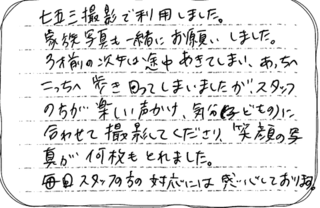 七五三撮影で利用しました。
家族写真も一緒にお願いしました。
3才前の次女は途中あきてしまい、あっちへ
こっちへ歩き回ってしまいましたがスタッフ
の方が楽しい声かけ、気分(子ども)に
合わせて撮影してくださり、笑顔の写
真が何枚もとれました。
毎回スタッフの方の対応には感心しております。